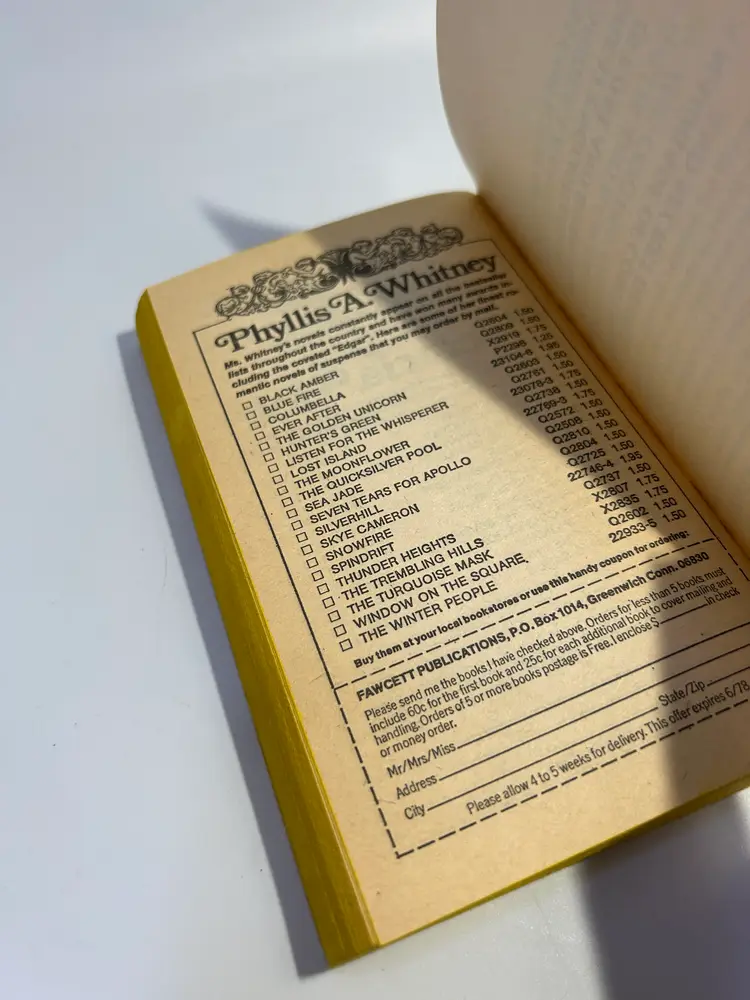 Phyllis A. Whitney
Ms. Whitney's novels constantly appear on all the bestseller
lists throughout the country and have won many awards in-
cluding the coveted "Edgar". Here are some of her finest ro-
mantic novels of suspense that you may order by mail.
☐ BLACK AMBER Q2604 1.50
☐ BLUE FIRE Q2809 1.50
☐ COLUMBELLA X2919 1.75
☐ EVER AFTER P2298 1.25
☐ THE GOLDEN UNICORN 23104-6 1.95
☐ HUNTER'S GREEN Q2603 1.50
☐ LISTEN FOR THE WHISPERER Q2761 1.50
☐ LOST ISLAND 23078-3 1.75
☐ THE MOONFLOWER Q2738 1.50
☐ THE QUICKSILVER POOL 22769-3 1.75
☐ SEA JADE Q2572 1.50
☐ SEVEN TEARS FOR APOLLO Q2508 1.50
☐ SILVERHILL Q2810 1.50
☐ SKYE CAMERON Q2804 1.50
☐ SNOWFIRE Q2725 1.50
☐ SPINDRIFT 22746-4 1.95
☐ THUNDER HEIGHTS Q2737 1.50
☐ THE TREMBLING HILLS X2807 1.75
☐ THE TURQUOISE MASK X2835 1.75
☐ WINDOW ON THE SQUARE Q2602 1.50
☐ THE WINTER PEOPLE 22933-5 1.50
Buy them at your local bookstores or use this handy coupon for ordering:
FAWCETT PUBLICATIONS, P.O. Box 1014, Greenwich Conn. 06830
Please send me the books I have checked above. Orders for less than 5 books must
include 60c for the first book and 25c for each additional book to cover mailing and
handling. Orders of 5 or more books postage is Free. I enclose $ in check
or money order.
Mr/Mrs/Miss
Address
City State/Zip
Please allow 4 to 5 weeks for delivery. This offer expires 6/78.